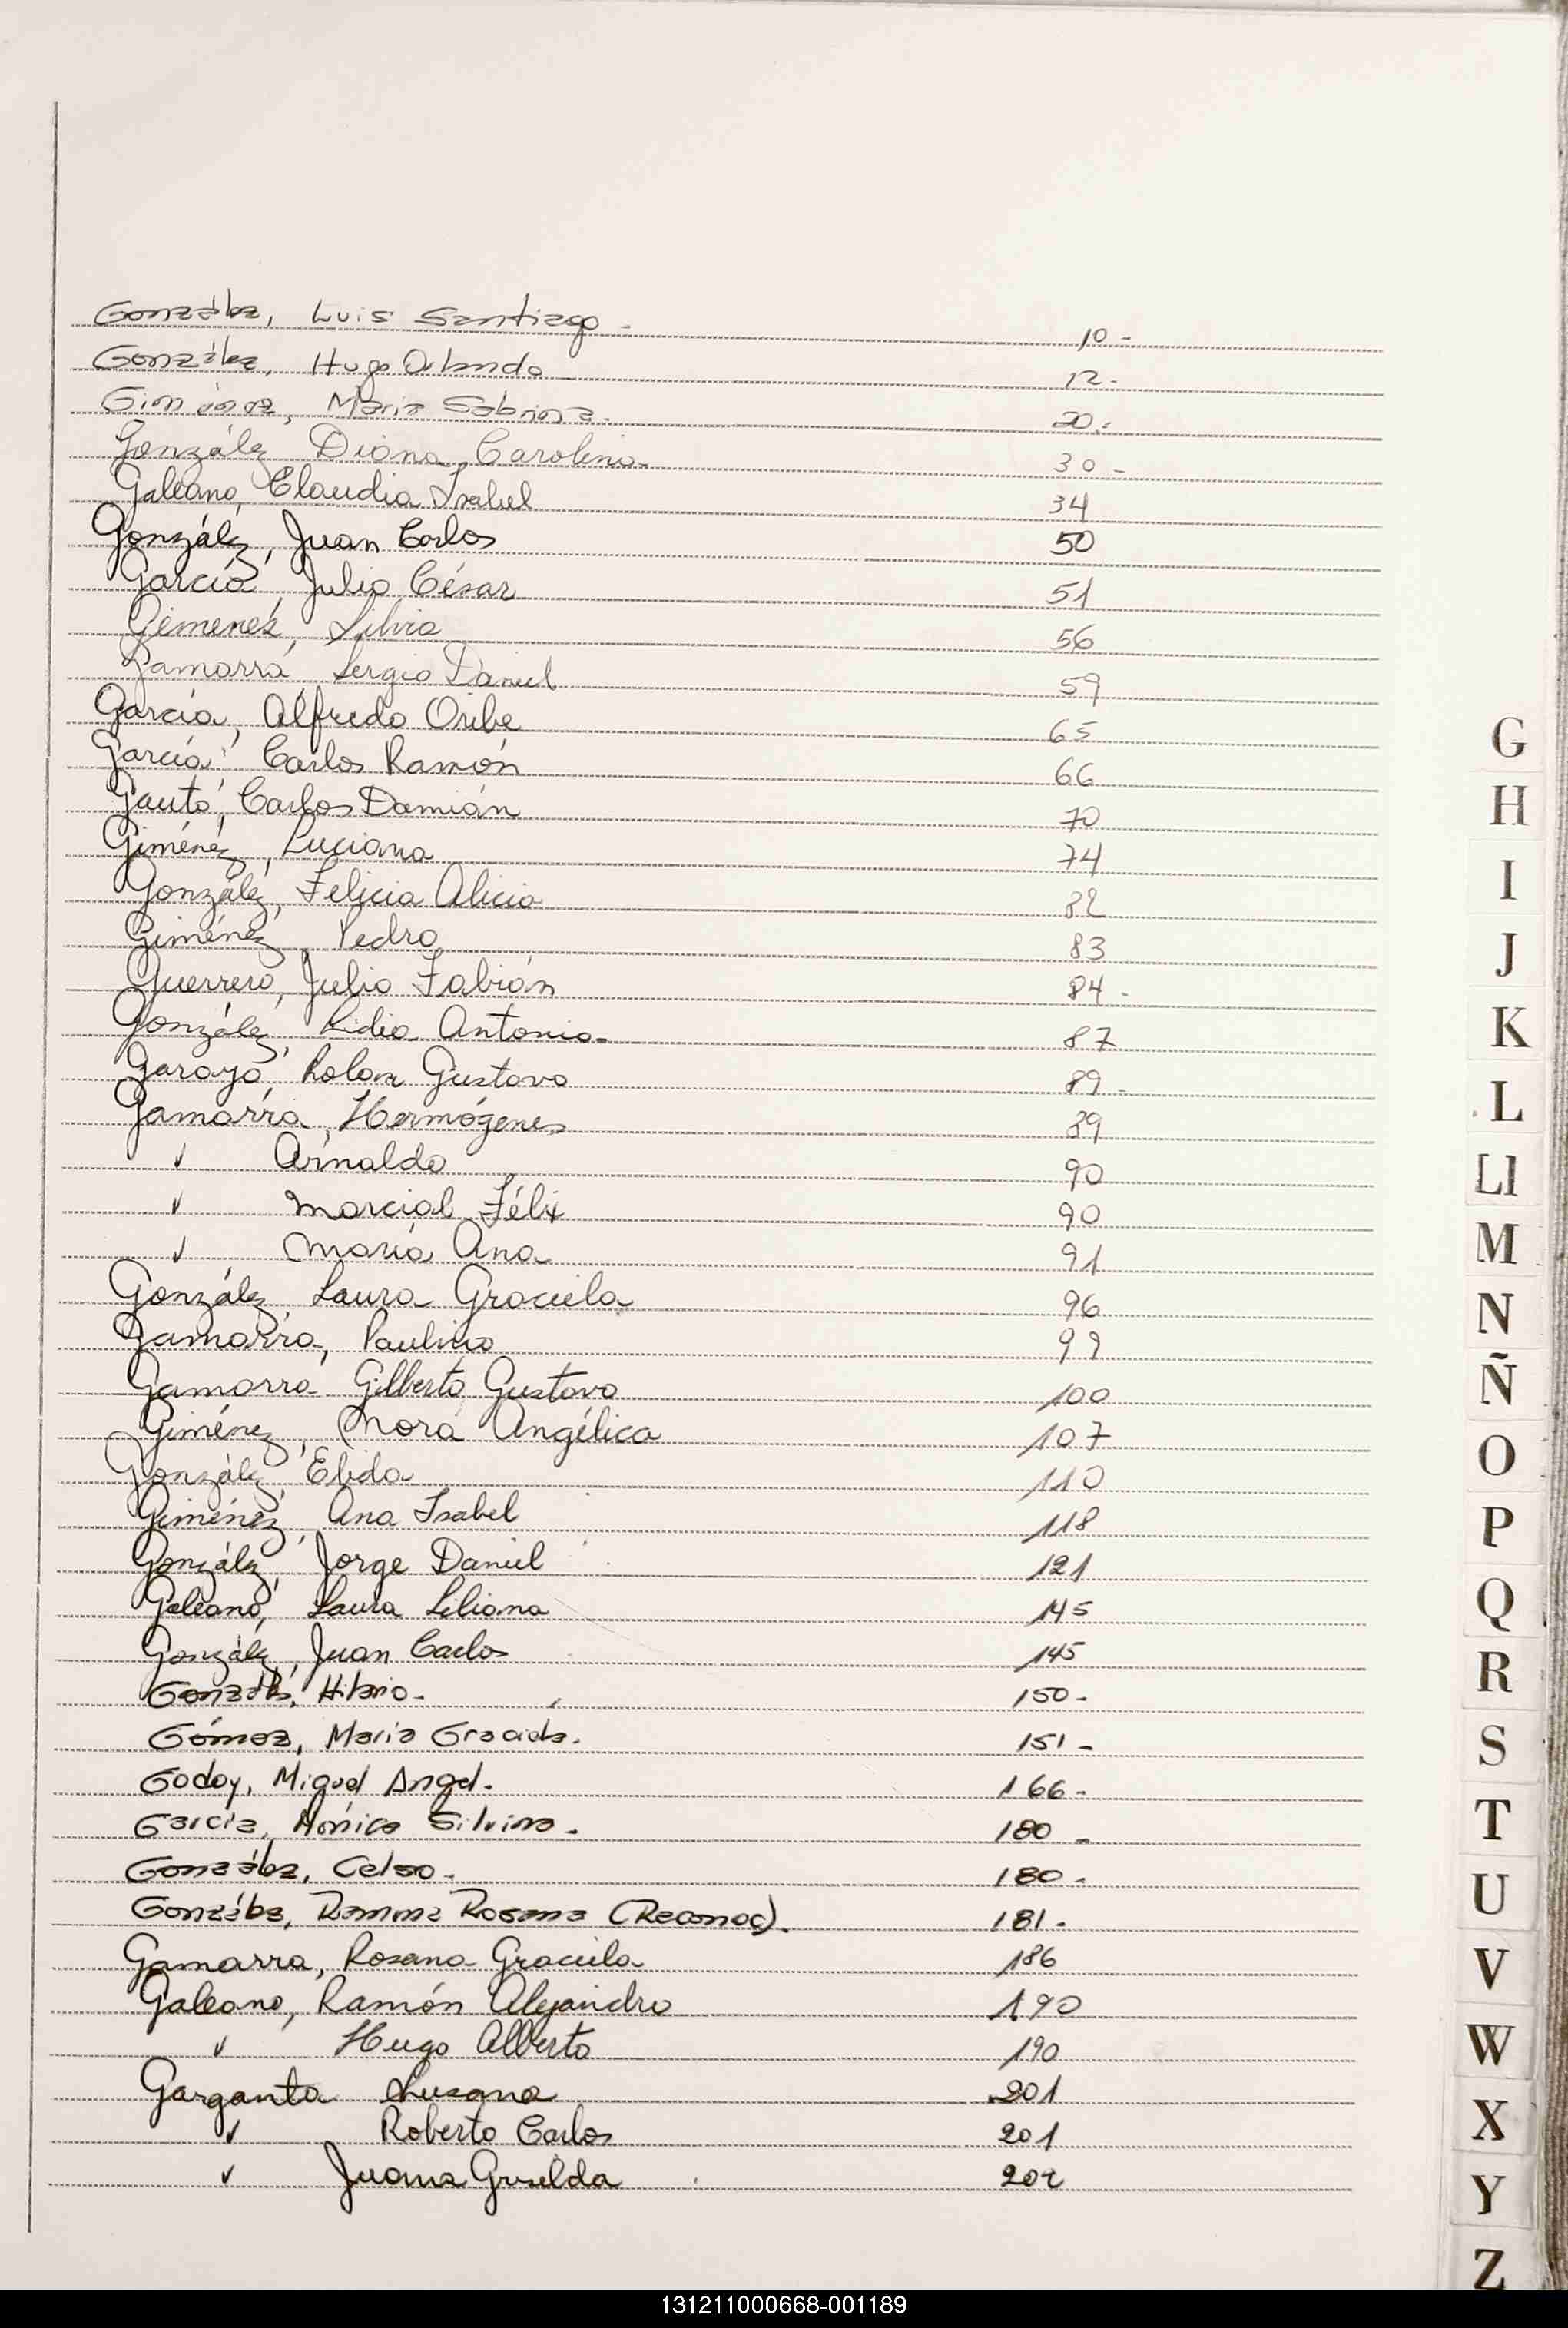 González, Luis Santiago - 10 -
González, Hugo Orlando 12 -
Giménez, María Sabrina. 20 -
González, Diana Carolina - 30 -
Galeano, Claudia Isabel 34
González, Juan Carlos 50
García, Julio César 51
Gimenez, Silvia 56
Gamarra Sergio Daniel 59
García, Alfredo Oribe 65
García, Carlos Ramón 66
Gauto, Carlos Damián 70
Giménez, Luciana 74
González, Felicia Alicia 82
Giménez, Pedro 83
Guerrero, Julio Fabián 84 -
González, Lidia Antonia - 87
Garayo, Gustavo 89 -
Gamarra, Hermógenes 89
✓ Arnaldo 90
✓ Marcial Félix 90
✓ María Ana 91
González, Laura Graciela 96
Gamarra, Paulino 99
Gamarra Gilberto Gustavo 100
Giménez, Nora Angélica 107
González, Elida 110
Giménez, Ana Isabel 118
González, Jorge Daniel 121
Galeano, Laura Liliana 145
González, Juan Carlos 145
González, Hilario - 150 -
Gómez, María Graciela. 151 -
Godoy, Miguel Angel. 166 -
García, Mónica Silvina - 180 -
González, Celso - 180 -
González, Ramona Rosana (Reconoc). 181 -
Gamarra, Rosana Graciela 186
Galeano, Ramón Alejandro 190
✓ Hugo Alberto 190
Garganta Susana 201
✓ Roberto Carlos 201
✓ Juana Griselda 202
G
H
I
J
K
L
Ll
M
N
Ñ
O
P
Q
R
S
T
U
V
W
X
Y
Z
131211000668-001189